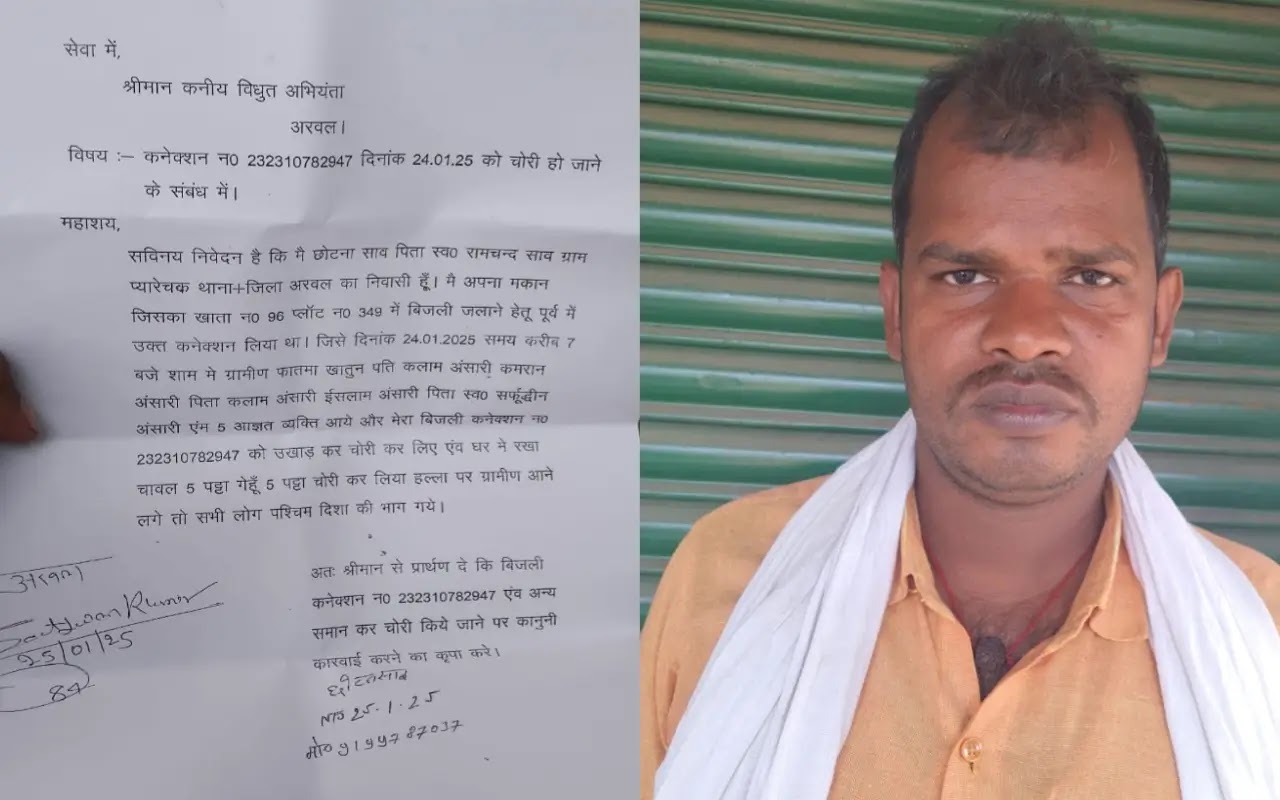 सेवा में,
श्रीमान कनीय विधुत अभियंता
अरवल।
विषय :– कनेक्शन न0 232310782947 दिनांक 24.01.25 को चोरी हो जाने
के संबंध में।
महाशय,
सविनय निवेदन है कि मै छोटना साव पिता स्व0 रामचन्द साव ग्राम
प्यारेचक थाना+जिला अरवल का निवासी हूँ। मै अपना मकान
जिसका खाता न0 96 प्लॉट न0 349 में बिजली जलाने हेतू पूर्व में
उक्त कनेक्शन लिया था। जिसे दिनांक 24.01.2025 समय करीब 7
बजे शाम मे ग्रामीण फातमा खातुन पति कलाम अंसारी कमरान
अंसारी पिता कलाम अंसारी ईसलाम अंसारी पिता स्व0 सर्फूद्धीन
अंसारी एंम 5 आज्ञत व्यक्ति आये और मेरा बिजली कनेक्शन न0
232310782947 को उखाड़ कर चोरी कर लिए एंव घर मे रखा
चावल 5 पट्टा गेहूँ 5 पट्टा चोरी कर लिया हल्ला पर ग्रामीण आने
लगे तो सभी लोग पश्चिम दिशा की भाग गये।
अतः श्रीमान से प्रार्थण दे कि बिजली
कनेक्शन न0 232310782947 एंव अन्य
समान कर चोरी किये जाने पर कानुनी
कारवाई करने का कृपा करे।
25.1.25
मो0 9199787037
Kumar
25/01/25